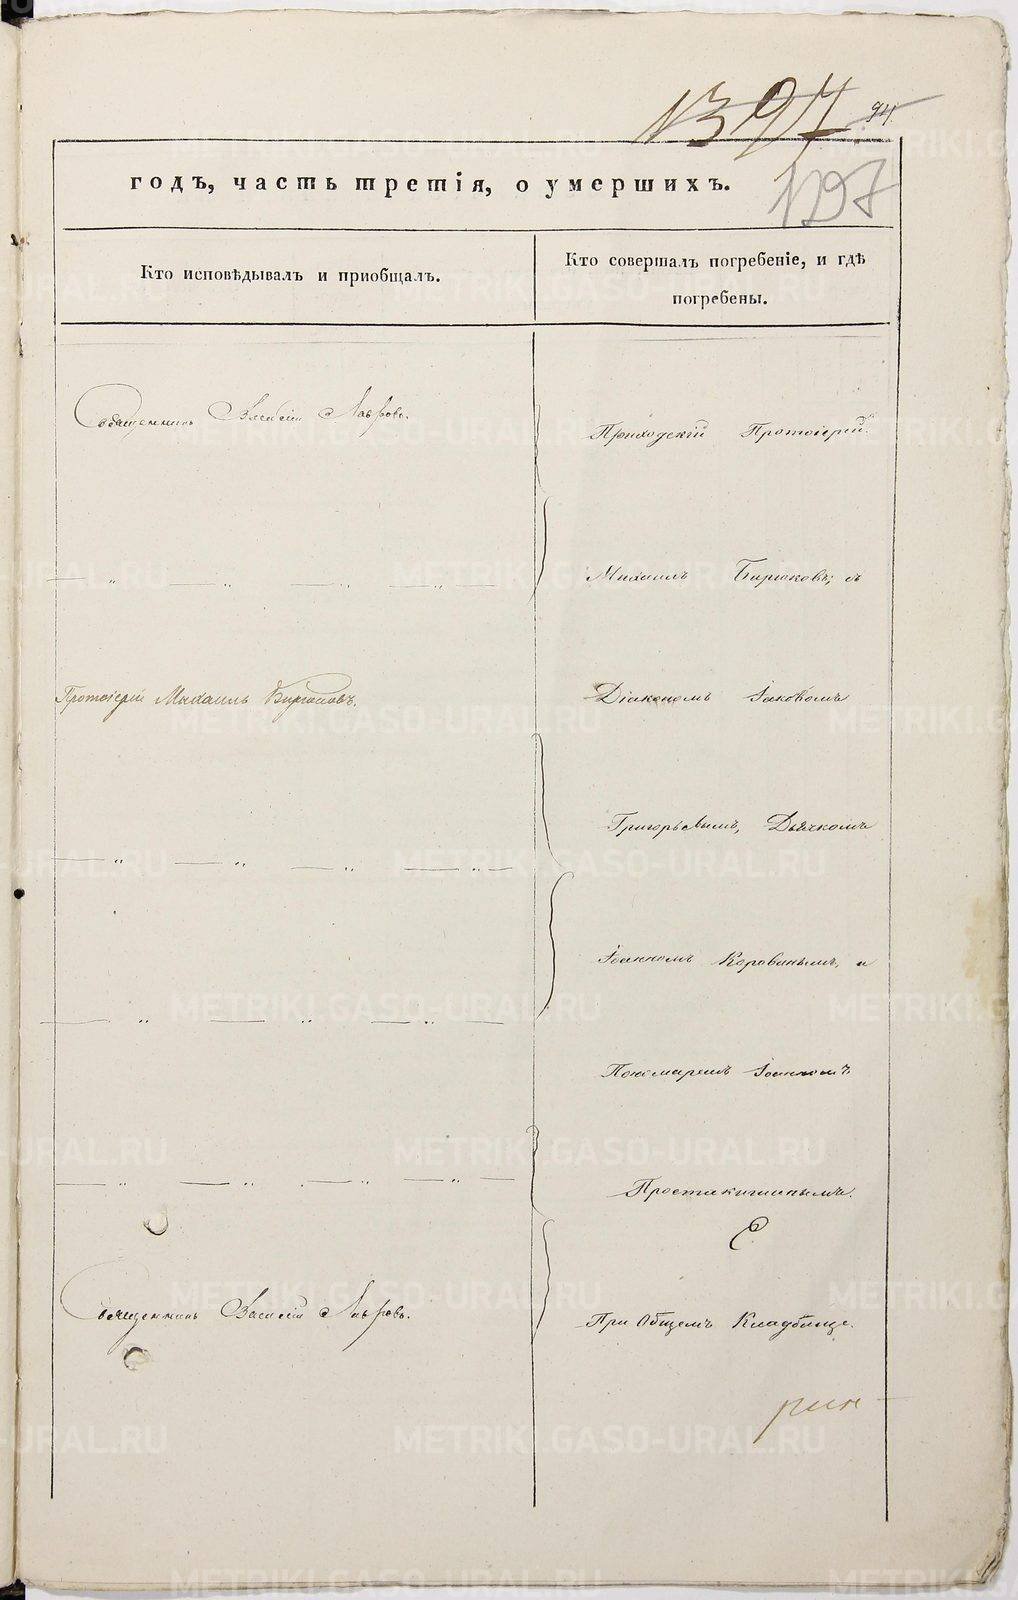 1397
94.
1397
годъ, часть третія, о умершихъ.
Кто исповѣдывалъ и приобщалъ.
Кто совершалъ погребеніе, и гдѣ
погребены.
Священникъ Василій Лавровъ.
Приходскій Протоіерей
— „ — „ — „ — „ —
Михаилъ Бирюковъ; съ
Протоіерей Михаилъ Бирюковъ.
Діакономъ Іаковомъ
Григорьевымъ, Дьячкомъ
— „ — „ — „ — „ —
Іоанномъ Коровинымъ, и
— „ — „ — „ —
Пономаремъ Іоанномъ
— „ — „ — „ — „ —
Простакишинымъ.
Священникъ Василій Лавровъ.
При Общемъ Кладбище.
METRIKI.GASO-URAL.RU